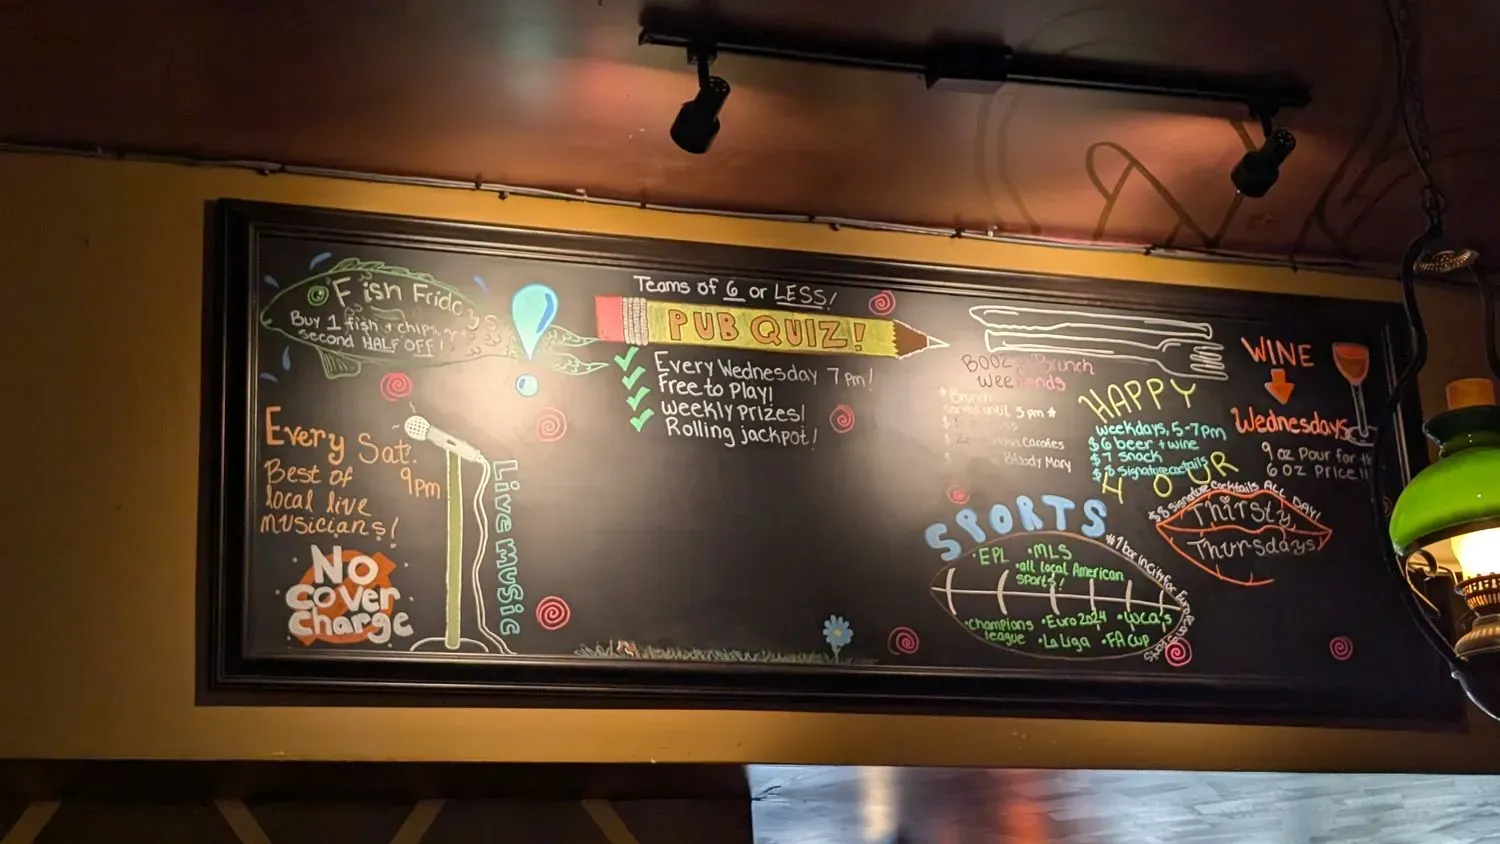 Fish Friday
Buy 1 fish + chips, get
second HALF OFF!
Every Sat.
9pm
Best of
local live
musicians!
NO
COVER
charge
Live music
Teams of 6 or LESS!
PUB QUIZ!
Every Wednesday 7pm!
Free to Play!
Weekly prizes!
Rolling jackpot!
BOOZy Brunch
Weekends
Brunch
served until 3pm
Carafes
Bloody Mary
HAPPY
weekdays, 5-7pm
$6 beer + wine
$7 snack
$8 Signature cocktails
HOUR
WINE
Wednesdays
9 oz Pour for the
6 oz Price!!
$8 Signature Cocktails ALL DAY!
Thirsty
Thursdays
SPORTS
#1 bar in City for European Sports
•EPL •MLS
•all local American
sports!
•champions
league
•Euro 2024
•WCQ's
•La Liga •FA Cup